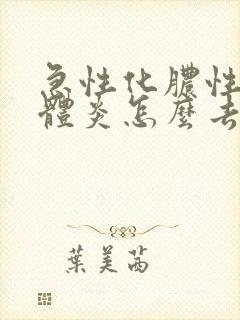 急性化膿性
體炎怎麼去
葉美茜